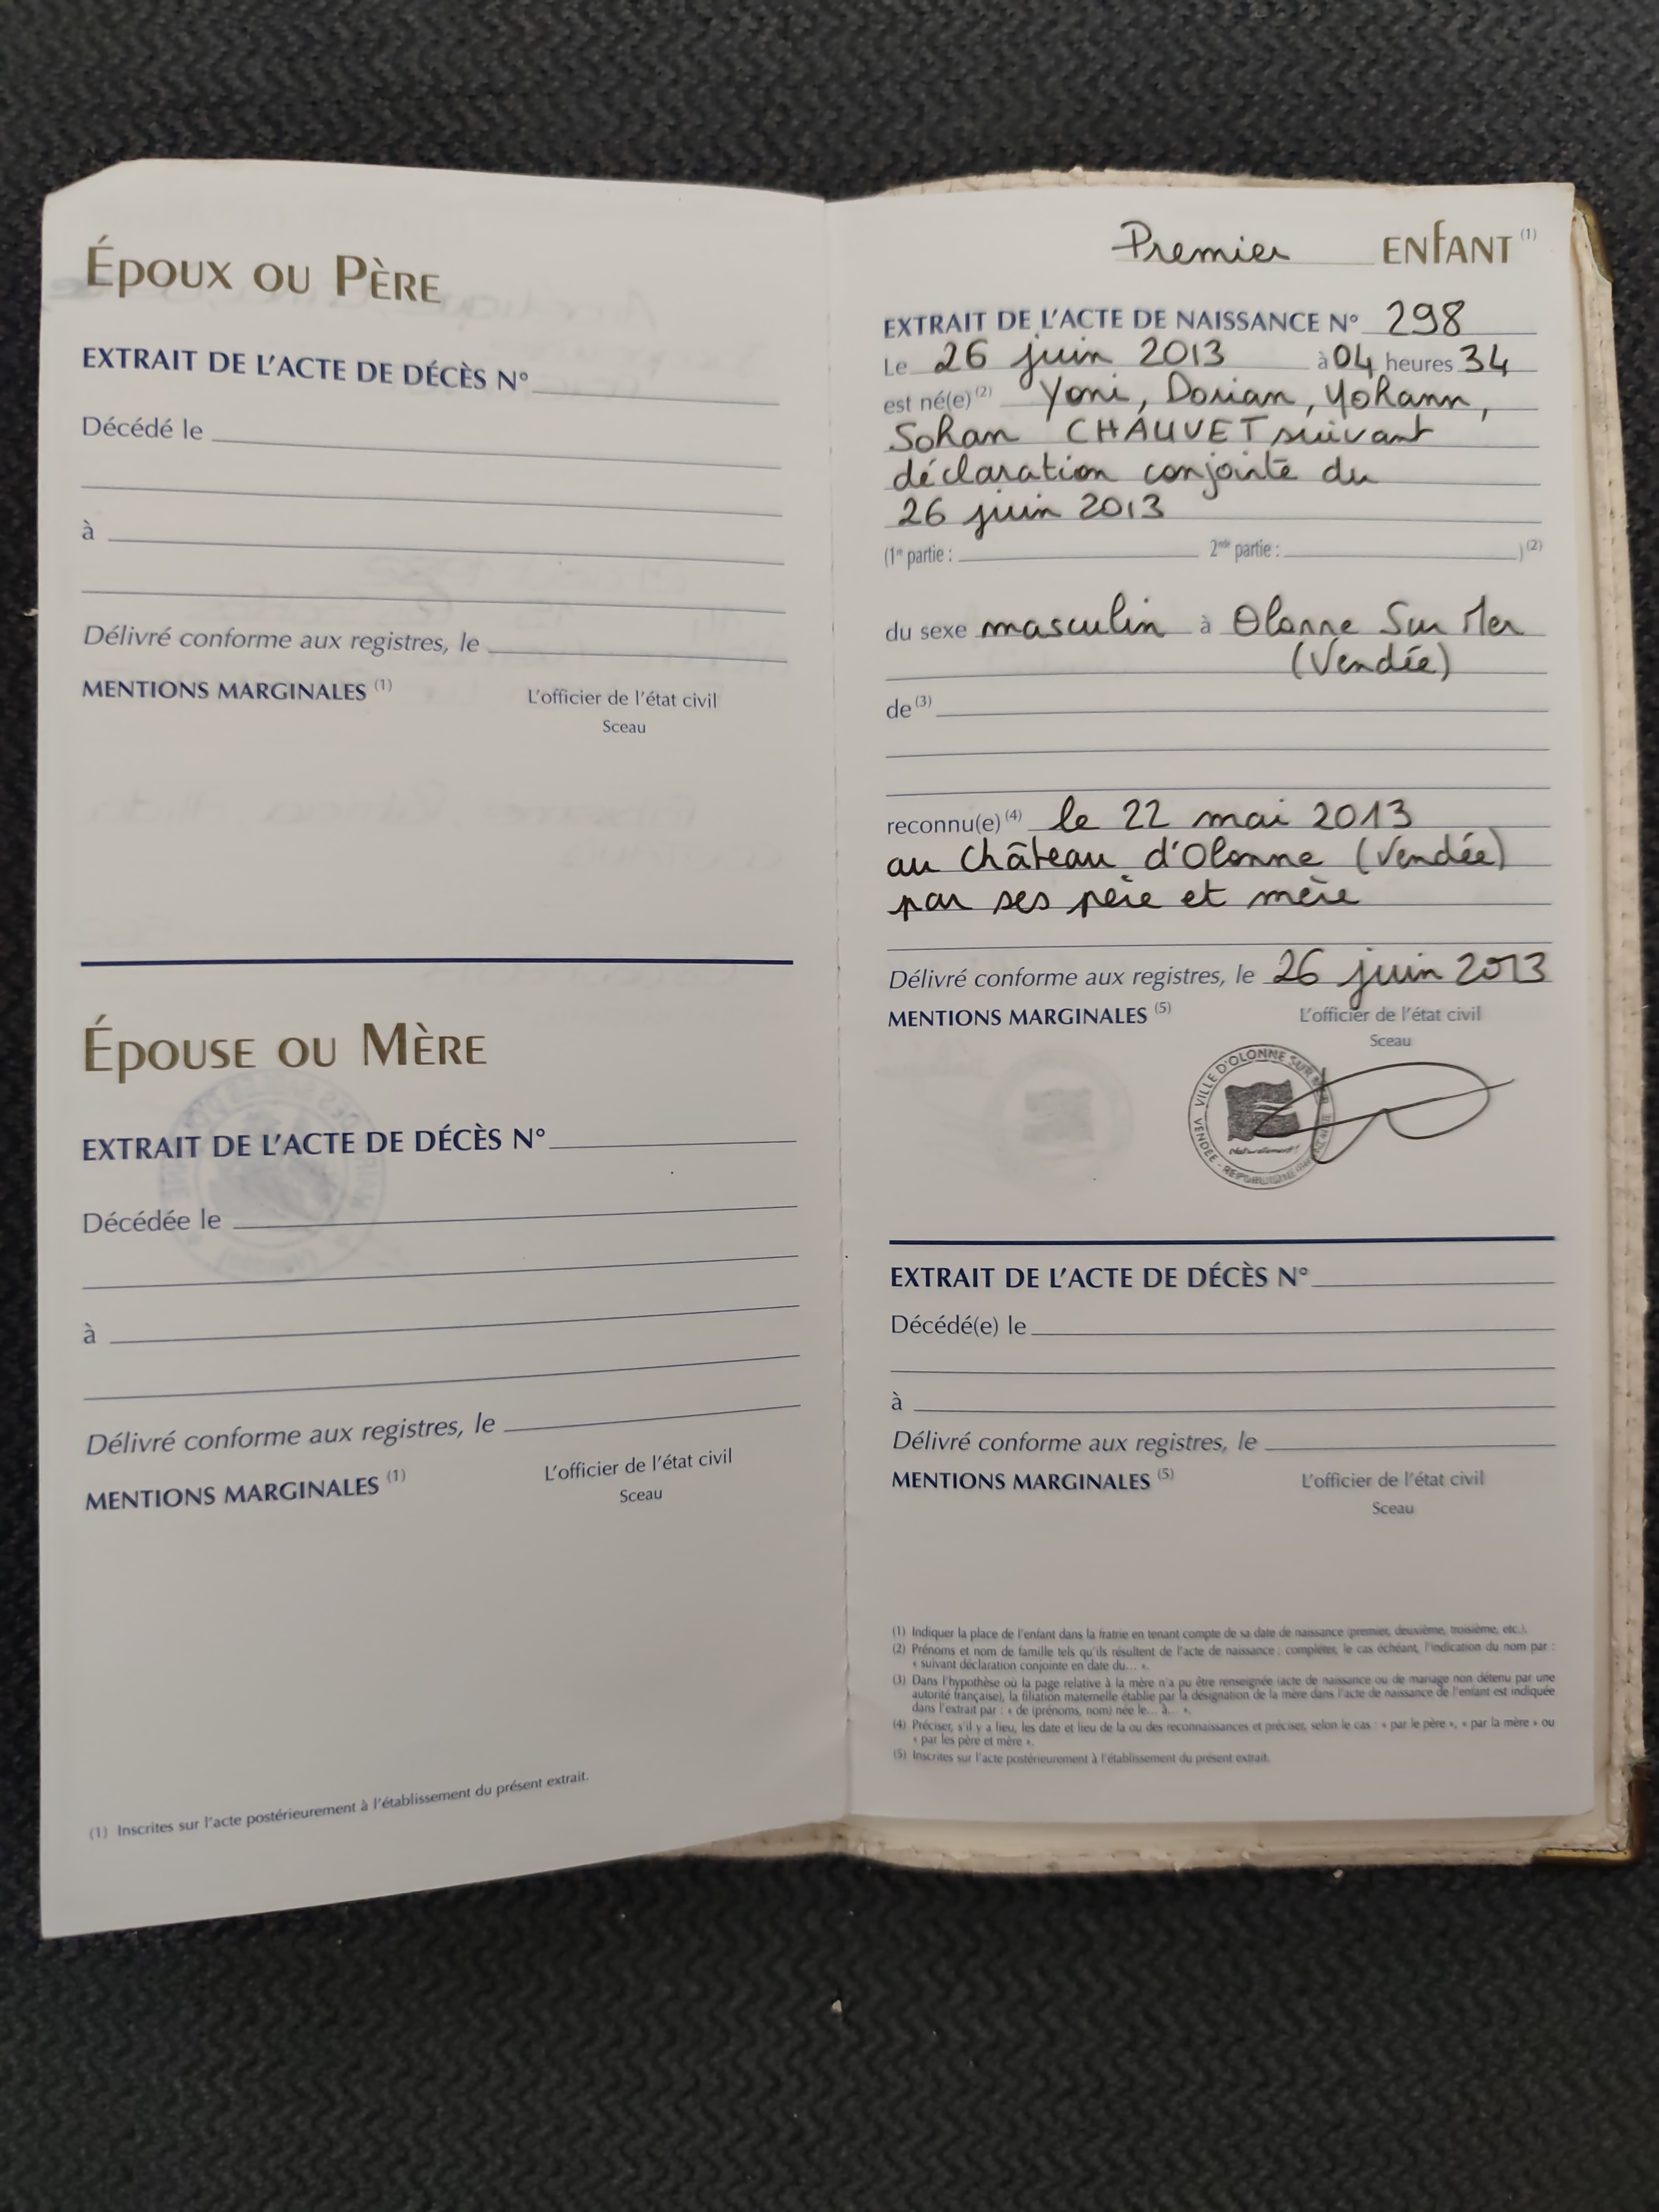 Époux ou Père
EXTRAIT DE L'ACTE DE DÉCÈS N°
Décédé le
à
Délivré conforme aux registres, le
MENTIONS MARGINALES (1)
L'officier de l'état civil
Sceau
Épouse ou Mère
EXTRAIT DE L'ACTE DE DÉCÈS N°
Décédée le
à
Délivré conforme aux registres, le
MENTIONS MARGINALES (1)
L'officier de l'état civil
Sceau
(1) Inscrites sur l'acte postérieurement à l'établissement du présent extrait.
Premier ENFANT (1)
EXTRAIT DE L'ACTE DE NAISSANCE N° 298
Le 26 juin 2013 à 04 heures 34
est né(e) (2) Yoni, Dorian, Yohann,
Sohan CHAUVET suivant
déclaration conjointe du
26 juin 2013
(1re partie : 2nde partie : ) (2)
du sexe masculin à Olonne Sur Mer
(Vendée)
de (3)
reconnu(e) (4) le 22 mai 2013
au Château d'Olonne (Vendée)
par ses père et mère
Délivré conforme aux registres, le 26 juin 2013
MENTIONS MARGINALES (5)
L'officier de l'état civil
Sceau
VILLE D'OLONNE SUR MER
VENDÉE
Naturellement !
EXTRAIT DE L'ACTE DE DÉCÈS N°
Décédé(e) le
à
Délivré conforme aux registres, le
MENTIONS MARGINALES (5)
L'officier de l'état civil
Sceau
(1) Indiquer la place de l'enfant dans la fratrie en tenant compte de sa date de naissance (premier, deuxième, troisième, etc.).
(2) Prénoms et nom de famille tels qu'ils résultent de l'acte de naissance ; compléter, le cas échéant, l'indication du nom par :
« suivant déclaration conjointe en date du... ».
(3) Dans l'hypothèse où la page relative à la mère n'a pu être renseignée (acte de naissance ou de mariage non détenu par une
autorité française), la filiation maternelle établie par la désignation de la mère dans l'acte de naissance de l'enfant est indiquée
dans l'extrait par : « de (prénoms, nom) née le... à... ».
(4) Préciser, s'il y a lieu, les date et lieu de la ou des reconnaissances et préciser, selon le cas : « par le père », « par la mère » ou
« par les père et mère ».
(5) Inscrites sur l'acte postérieurement à l'établissement du présent extrait.